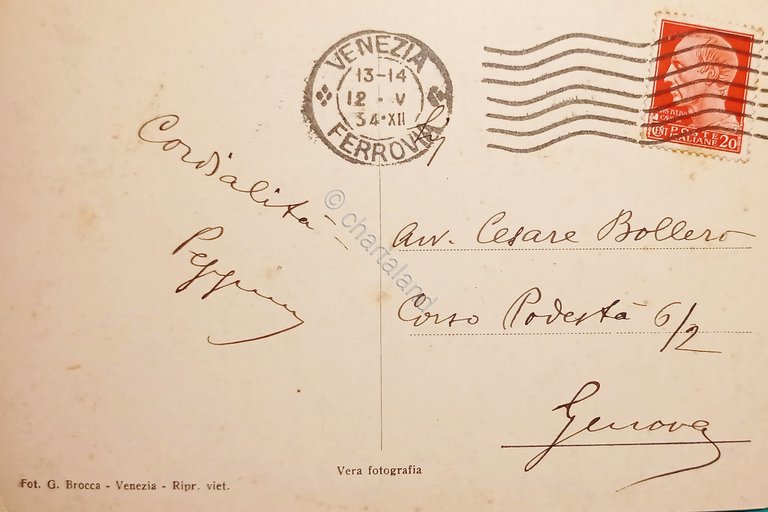 VENEZIA
13-14
12 · V
34·XII
FERROVIA
POSTE
ITALIANE
CENT 20
Cordialità
© chartaland
Avv. Cesare Bollero
Corso Podestà 6/2
Genova
Vera fotografia
Fot. G. Brocca - Venezia - Ripr. viet.